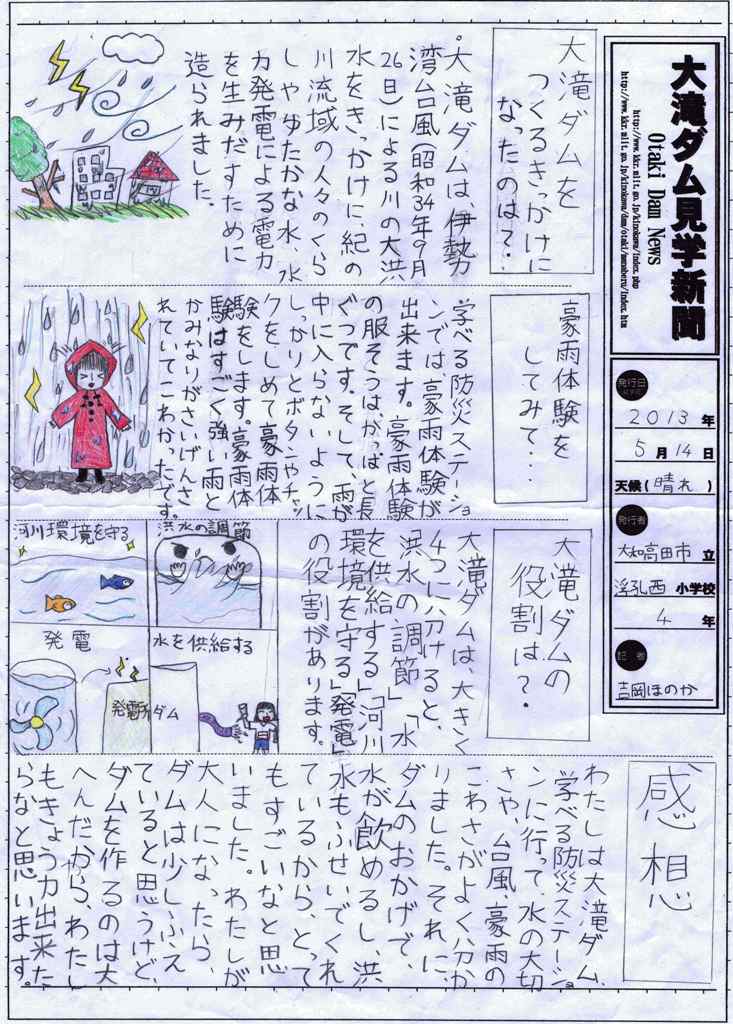 大滝ダム見学新聞
Otaki Dam News
http://www.kkr.mlit.go.jp/kinokawa/index.php
http://www.kkr.mlit.go.jp/kinokawa/dam/otaki/manaberu/index.htm
発行日
2013年
5月14日
天候(晴れ)
発行者
大和高田市立
浮孔西小学校
4年
記者
吉岡ほのか
大滝ダムを
つくるきっかけに
なったのは?・
・大滝ダムは、伊勢
湾台風(昭和34年9月
26日)による川の大洪
水をきっかけに、紀の
川流域の人々のくら
しやゆたかな水、水
力発電による電力
を生みだすために
造られました。
豪雨体験を
してみて・・・
学べる防災ステーショ
ンでは、豪雨体験が
出来ます。豪雨体験
の服そうは、かっぱと長
ぐつです。そして、雨が
中に入らないように
しっかりとボタンやチャッ
クをしめて豪雨体
験をします。豪雨体
験はすごく強い雨と
かみなりがさいげんさ
れていてこわかったです。
大滝ダムの
役割は?・
大滝ダムは、大きく
4つに分けると、
「洪水の調節」「水
を供給する」「河川
環境を守る」「発電」
の役割があります。
洪水の調節
河川環境を守る
水を供給する
ダム
発電
発電所
感想
わたしは大滝ダム、
学べる防災ステーショ
ンに行って、水の大切
さや、台風、豪雨の
こわさがよく分か
りました。それに、
ダムのおかげで、
水が飲めるし、洪
水もふせいでくれ
ているから、とって
もすごいなと思
いました。わたしが
大人になったら、
ダムは少しふえ
ていると思うけど、
ダムを作るのは大
へんだから、わたし
もきょう力出来た
らなと思います。